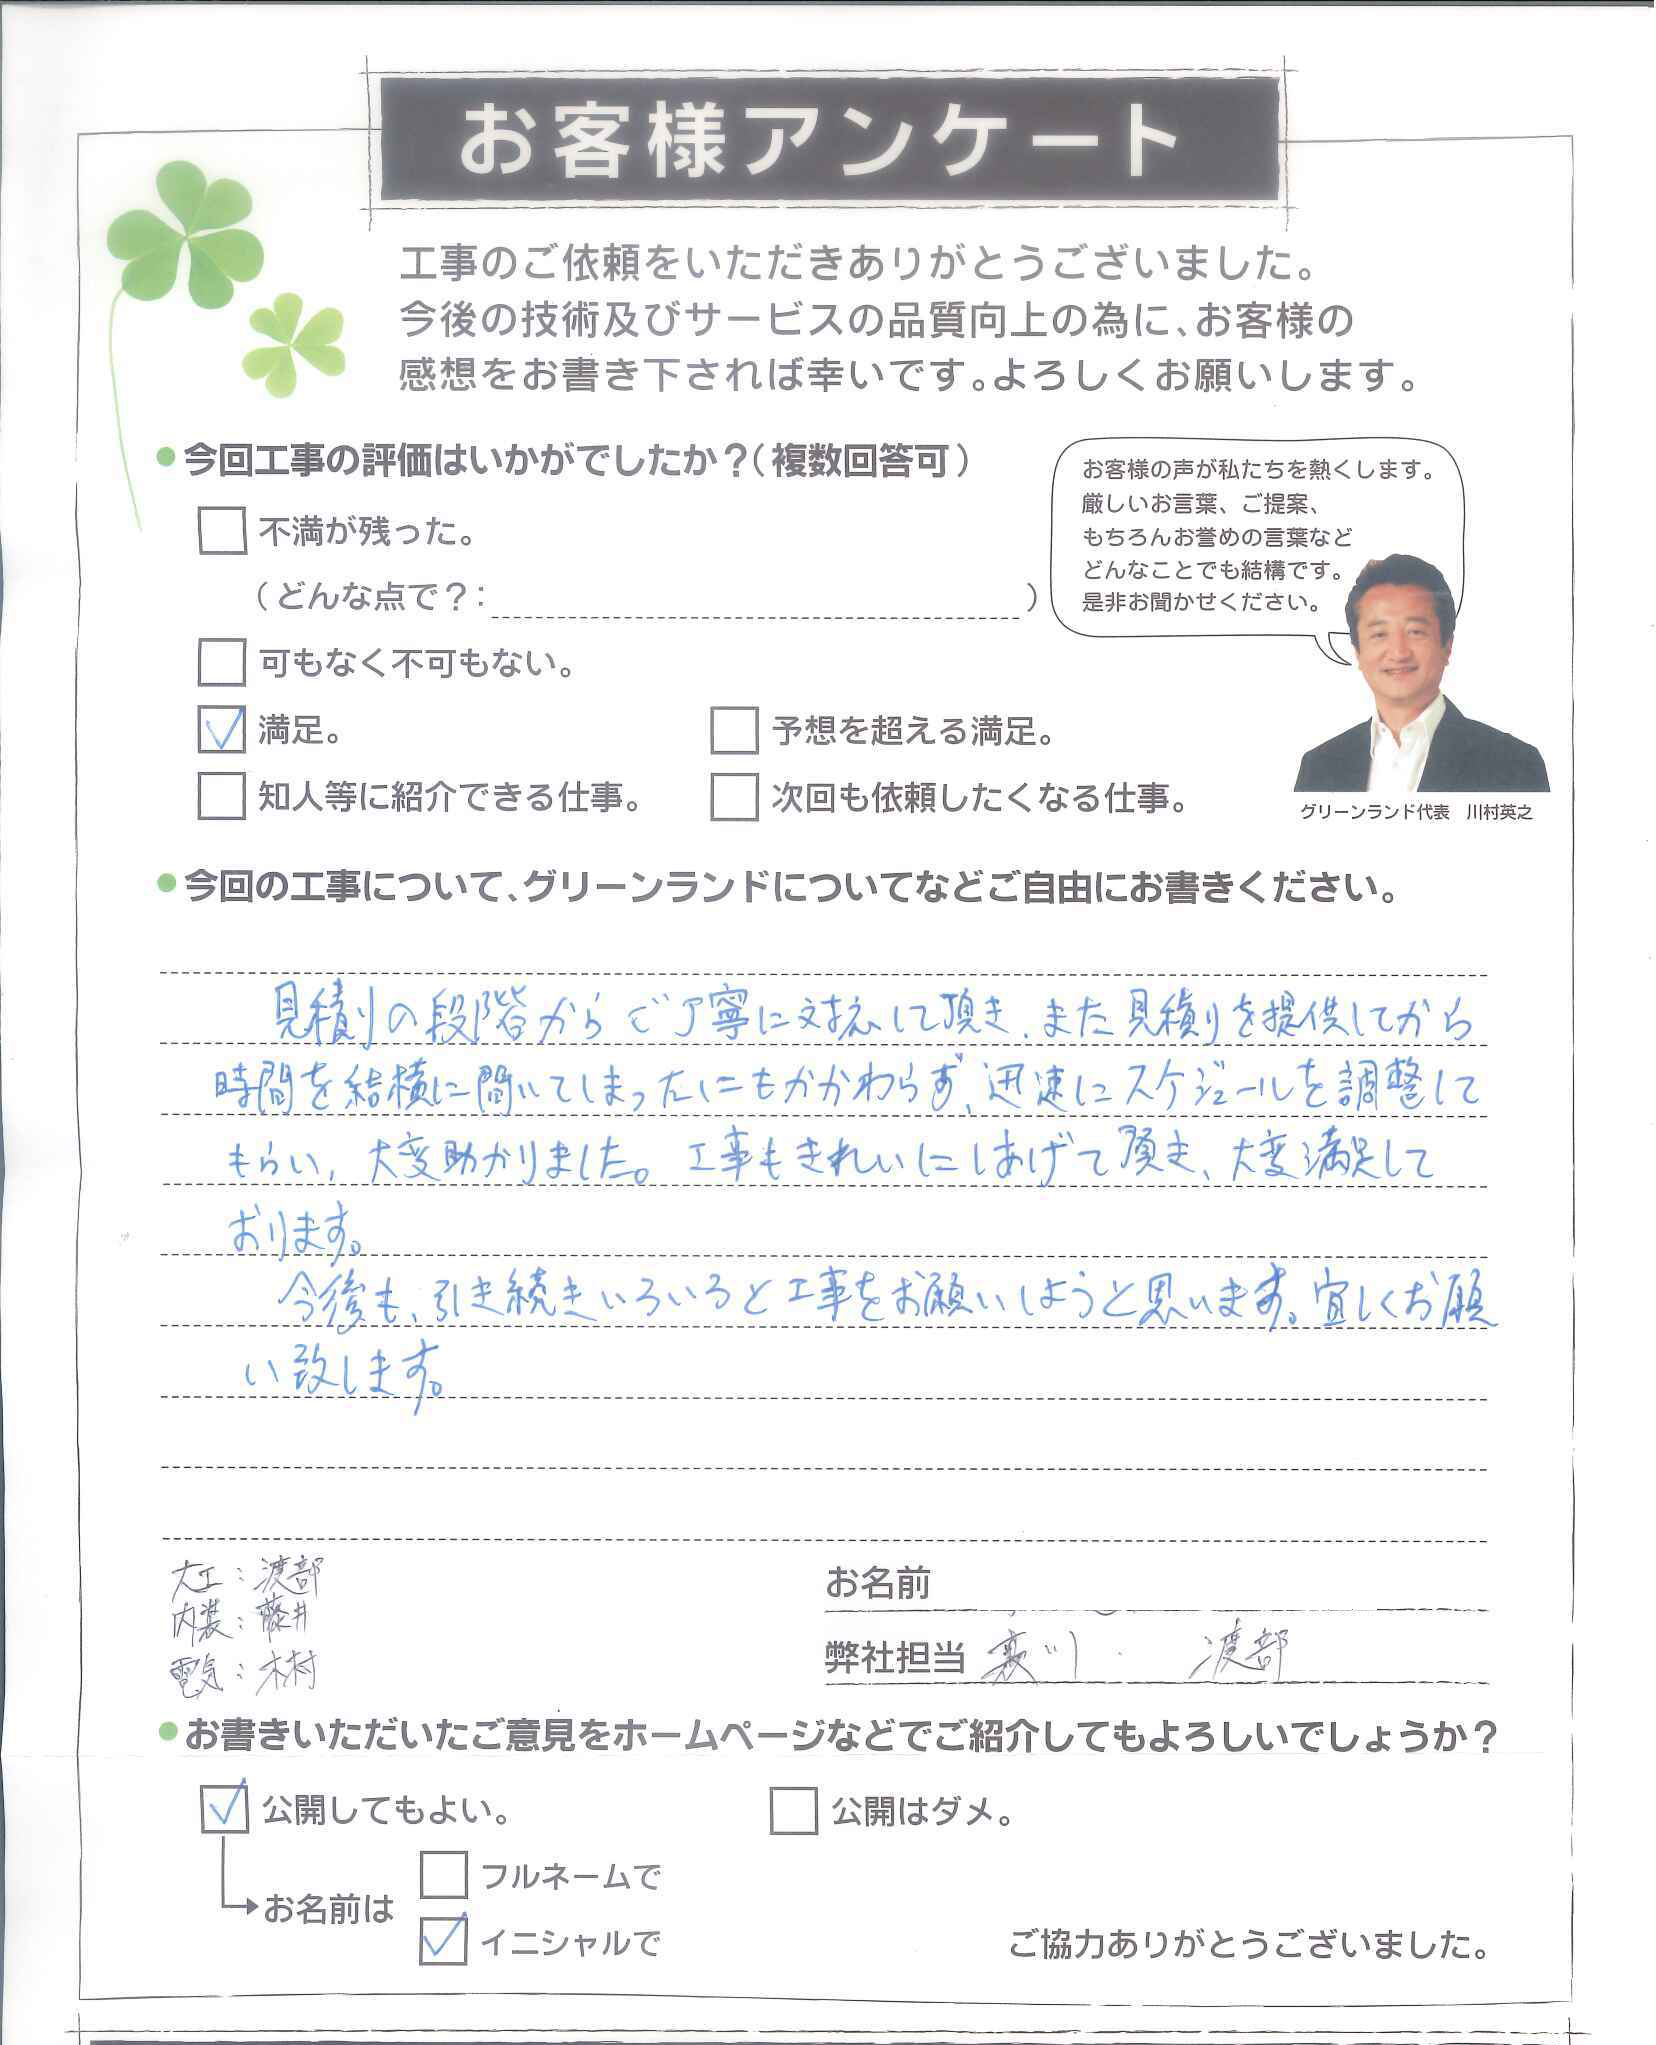 お客様アンケート
工事のご依頼をいただきありがとうございました。
今後の技術及びサービスの品質向上の為に、お客様の
感想をお書き下されば幸いです。よろしくお願いします。
今回工事の評価はいかがでしたか?(複数回答可)
お客様の声が私たちを熱くします。
厳しいお言葉、ご提案、
もちろんお誉めの言葉など
どんなことでも結構です。
是非お聞かせください。
グリーンランド代表 川村英之
不満が残った。
(どんな点で?: )
可もなく不可もない。
満足。 予想を超える満足。
知人等に紹介できる仕事。 次回も依頼したくなる仕事。
今回の工事について、グリーンランドについてなどご自由にお書きください。
見積りの段階からご丁寧に対応して頂き、また見積りを提供してから
時間を結構に開いてしまったにもかかわらず、迅速にスケジュールを調整して
もらい、大変助かりました。工事もきれいにしあげて頂き、大変満足して
おります。
今後も、引き続きいろいろと工事をお願いしようと思います。宜しくお願
い致します。
大工:渡部
内装:藤井
電気:木村
お名前
弊社担当 渡部
お書きいただいたご意見をホームページなどでご紹介してもよろしいでしょうか?
公開してもよい。 公開はダメ。
お名前は
フルネームで
イニシャルで
ご協力ありがとうございました。